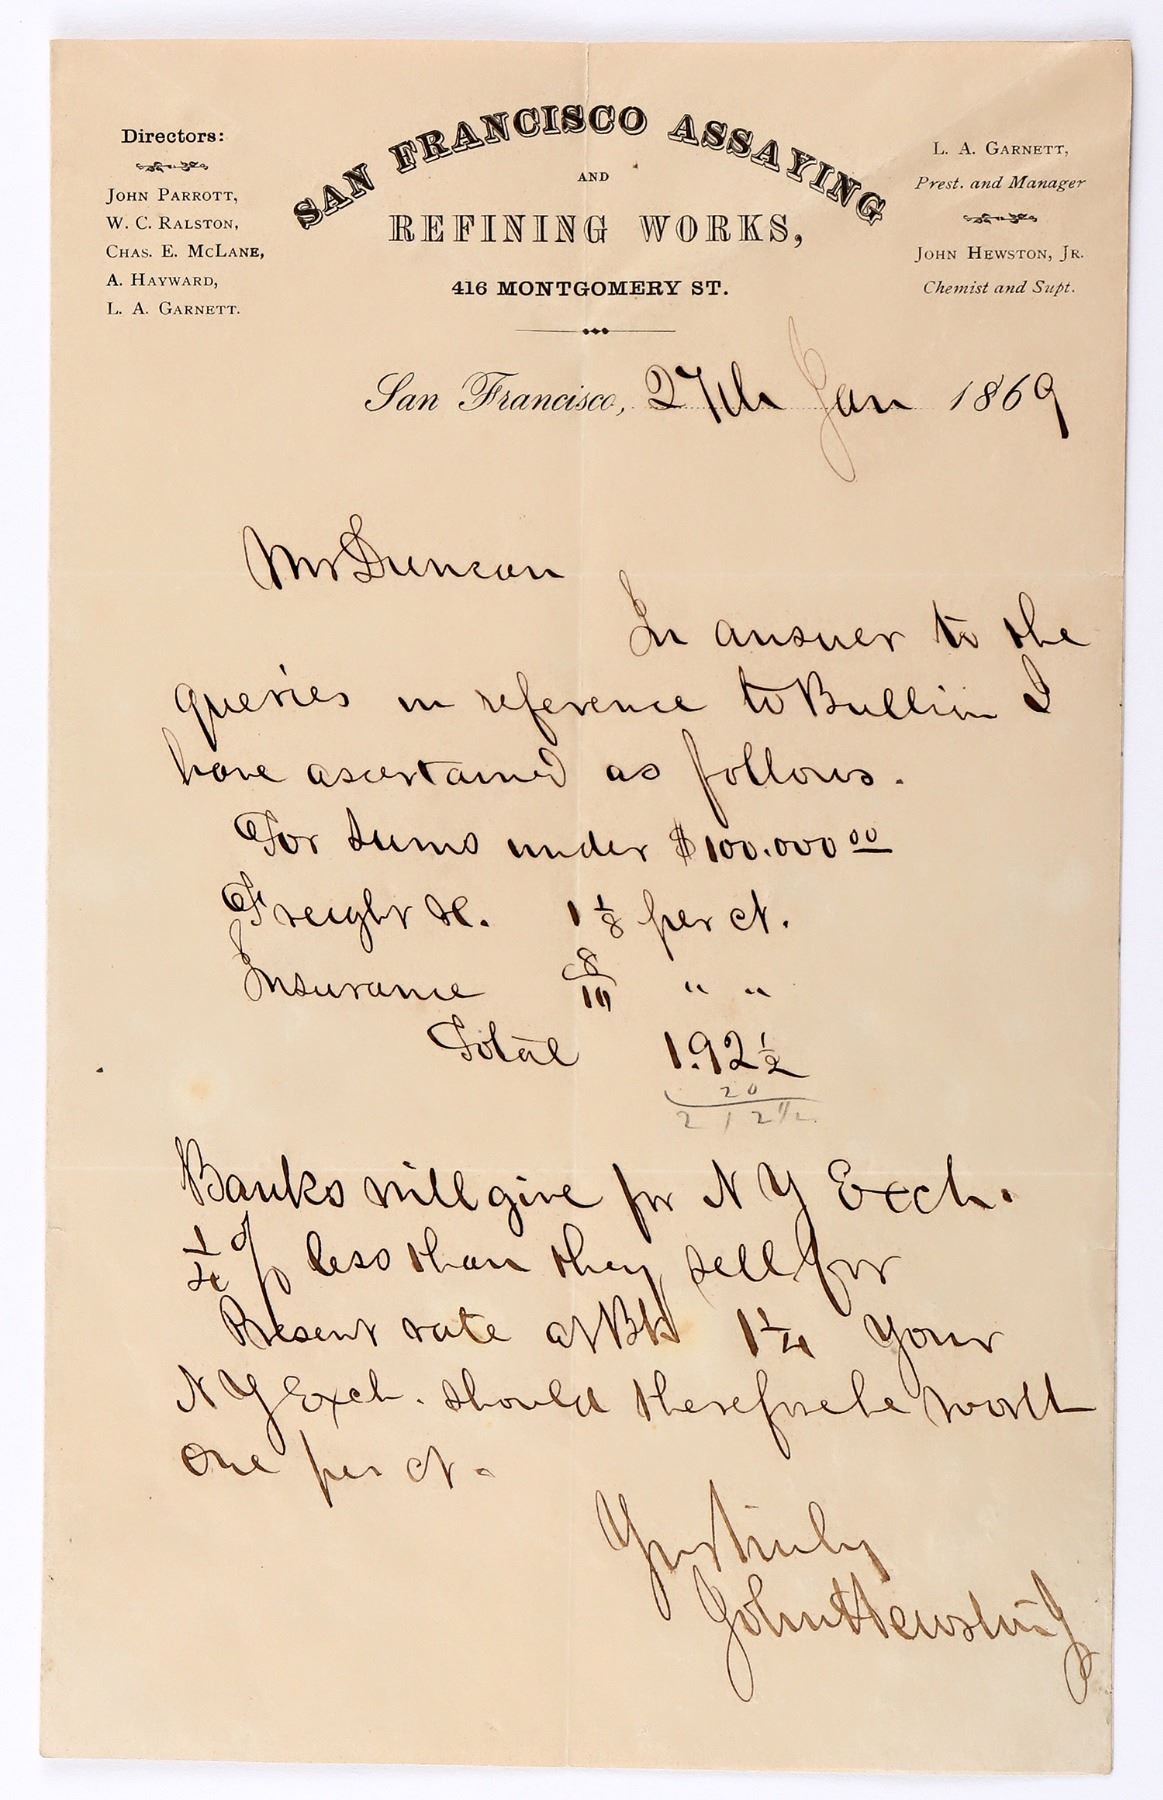 Directors:
JOHN PARROTT,
W. C. RALSTON,
CHAS. E. MCLANE,
A. HAYWARD,
L. A. GARNETT.
SAN FRANCISCO ASSAYING
AND
REFINING WORKS,
416 MONTGOMERY ST.
L. A. GARNETT,
Prest. and Manager
JOHN HEWSTON, JR.
Chemist and Supt.
San Francisco, 27th Jan 1869
Mr Duncan
In answer to the
queries in reference to Bullion I
have ascertained as follows.
For sums under $100.000 00
Freight &c. 1 1/8 per ct.
Insurance 8/10 " "
Total 1.92 1/2
20
2 12 1/2
Banks will give for N Y Exch.
1/4 % less than they sell for
Present rate at Bk 1 1/4 Your
N Y Exch. should therefore be worth
One per ct.
Yrs truly
John Hewston Jr